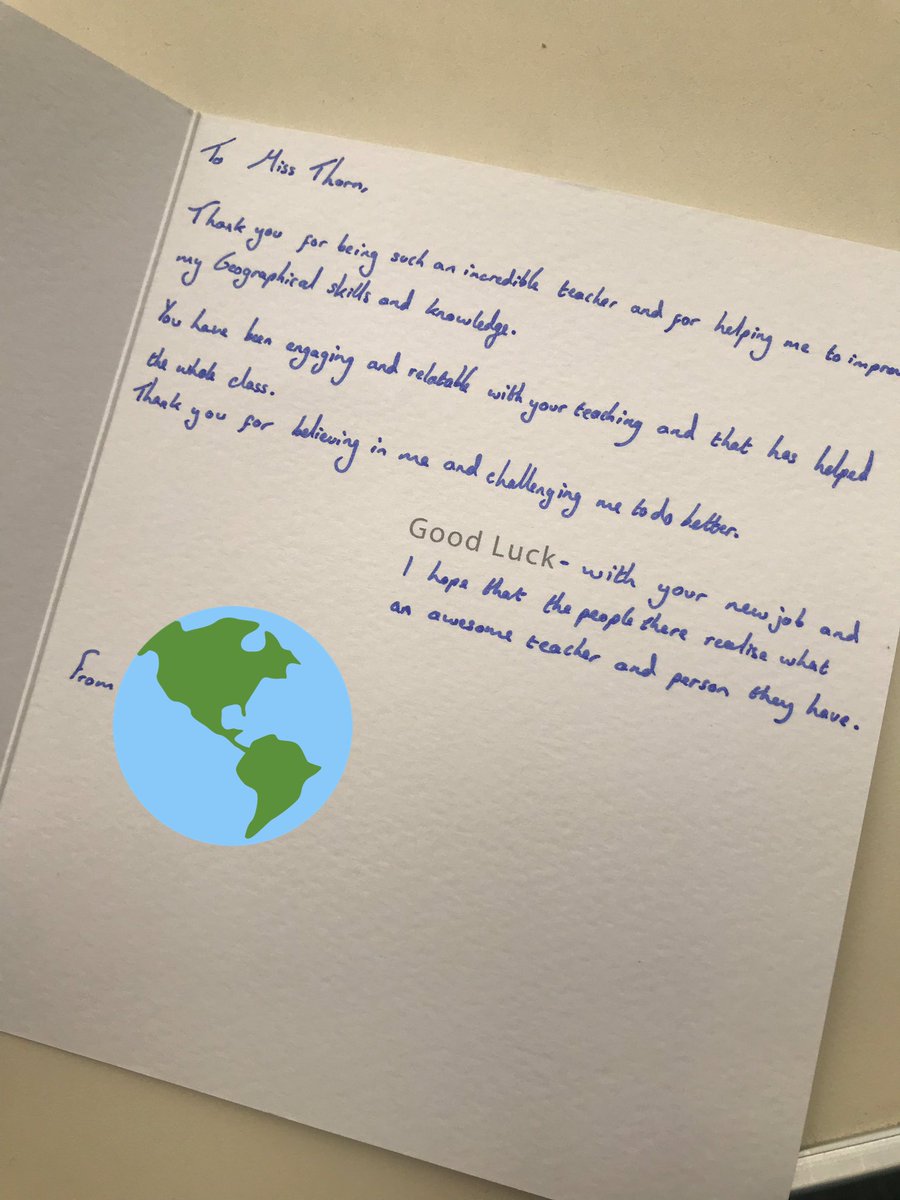 To Miss Thorn,
Thank you for being such an incredible teacher and for helping me to improv
my Geographical skills and knowledge.
You have been engaging and relatable with your teaching and that has helped
the whole class.
Thank you for believing in me and challenging me to do better.
Good Luck - with your new job and
I hope that the people there realise what
an awesome teacher and person they have.
From